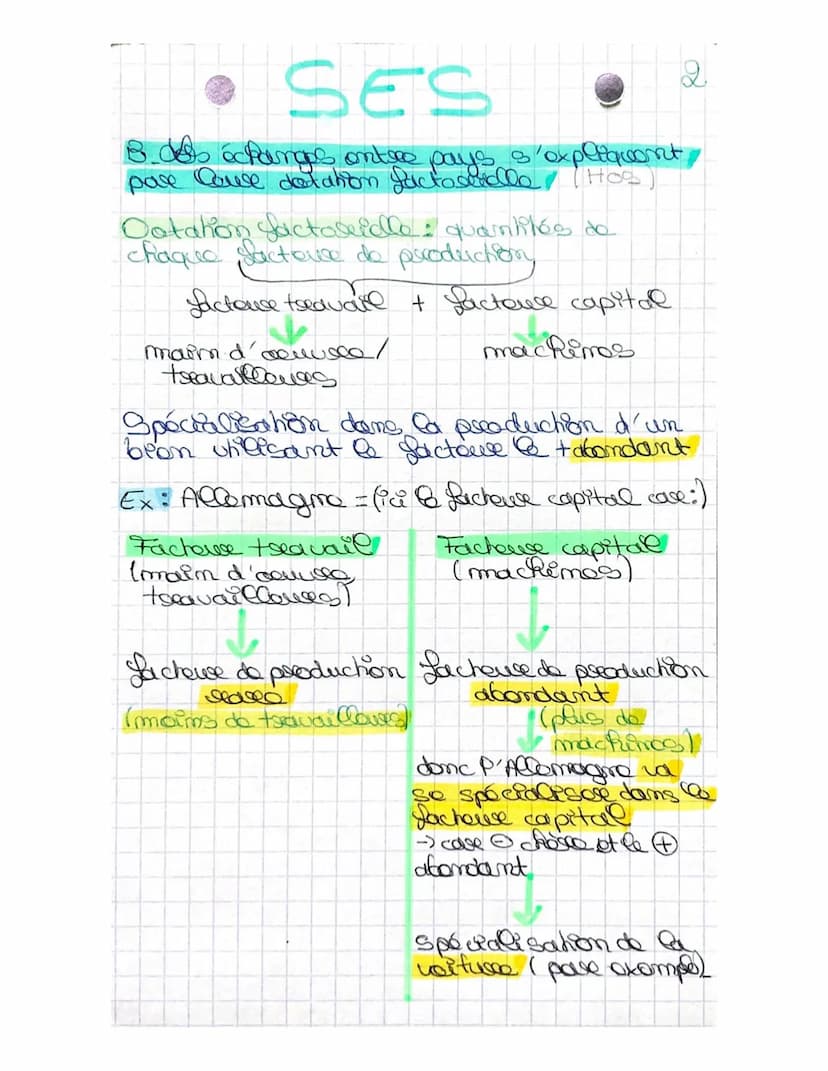 SES
2
B. des échanges entre pays s'expliquent
par leur dotation factorielle (HOS)
Dotation factorielle : quantités de
chaque facteur de production
facteur travail + facteur capital
main d'oeuvre/
travailleurs
machines
Spécialisation dans la production d'un
bien utilisant le facteur le + abondant
Ex : Allemagne = (ici le facteur capital car :)
Facteur travail
(main d'oeuvre,
travailleurs)
facteur de production
rare
(moins de travailleurs)
Facteur capital
(machines)
facteur de production
abondant
(plus de
machines)
donc l'Allemagne va
se spécialiser dans le
facteur capital
-> car ⊖ chère et le ⊕
abondant
spécialisation de la
voiture (par exemple)